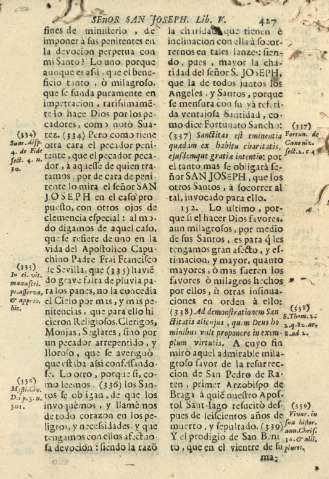 SEñOR SAN JOSEPH. Lib. V. 427
fines de ministerio, de
imponer à sus penitentes en
la devocion perpetua con
mi Santo? Lo uno, porque
aunque es assi, que el bene-
ficio tanto, ò milagroso,
que se funda puramente en
impetracion, rarisimamẽ-
te lo hace Dios por los pe-
cadores, como notó Sua-
rez. (334) Pero como tiene
otra cara el pecador peni-
tente, que el pecador peca-
dor, à aquesse de quien tra-
tamos, por de cara de peni-
tente lo mira el señor SAN
JOSEPH en el caso pro-
puesto, con otros ojos de
clemencia especial: al mo-
do digamos de aquel caso,
que se refiere de uno en la
vida del Apostolico Capu-
chino Padre Frai Francisco
de Sevilla, que (335) havié-
do grave falta de pluvia pa-
ra los panes, no la concedia
el Cielo por mas, y mas pe-
nitencias, que para ello hi-
cieron Religiosos, Clerigos,
Monjas, Siglares, sino por
un pecador arrepentido, y
lloroso, que se averiguò
que estaba assi confessando-
se. Lo otro, porque si, co-
mo leemos, (336) los San-
tos se obligan, de que los
invoquemos, y llamemos
de todo corazon en los pe-
ligros, y necesidades, y que
tengamos con ellos afectuo-
sa devocion: siendo la razõ
(334)
Suar. disp.
4. de Fide
sect. 4. n.
10.
(335)
In ej. vit.
manuscri.
pr. asserva,
& appro-
bit.
(336)
Mysti. Civ.
D. i p. 3. n.
301.
la charidad, que tienen è
inclinacion con ella à soco-
rrernos en tales lances; sien-
do, pues, mayor la cha-
ridad del señor S. JOSEPH,
que la de todos juntos los
Angeles, y Santos, porque
se mensura con su yà referi-
da ventajosa Santidad, co-
mo dice Fortunato Sancho:
(337) Sanctitas est eminentia
quædam ex habitu charitatis,
ejusdemque gratiæ intentio; por
el tanto mas se obligarà se-
ñor SAN JOSEPH, que los
otros Santos, à socorrer al
tal, invocado para ello.
132. Lo ultimo, por-
que si el hacer Dios favores,
aun milagrosos, por medio
de sus Santos, es para q̃ les
tengamos gran afecto, y es-
timacion, y mayor, quanto
mayores, ò mas fueren los
favores ò milagros hechos
por ellos, à otras insinua-
ciones en orden à ello:
(338) Ad demonstrationem San
ctitatis alicujus, quem Deus ho
minibus vult proponere in exem-
plum virtutis. A cuyo fin
mirò aquel admirable mila-
groso favor de la resurrec-
cion de San Pedro de Ra-
ten, primer Arzobispo de
Braga à quiẽ nuestro Apos-
tol Santiago resucitò des-
pues de seiscientos años de
muerto, y sepultado. (339)
Y el prodigio de San Beni-
to, que en el vientre de su
ma-
(337)
Fortun. de
Canoniz.
sect. 2. c 4
(338)
S. Thom. 2.
2. q. 82. ar.
2. ad 2.
(339)
Vivar. in
sua histor.
ann. Chris.
30. & alii.
plures.